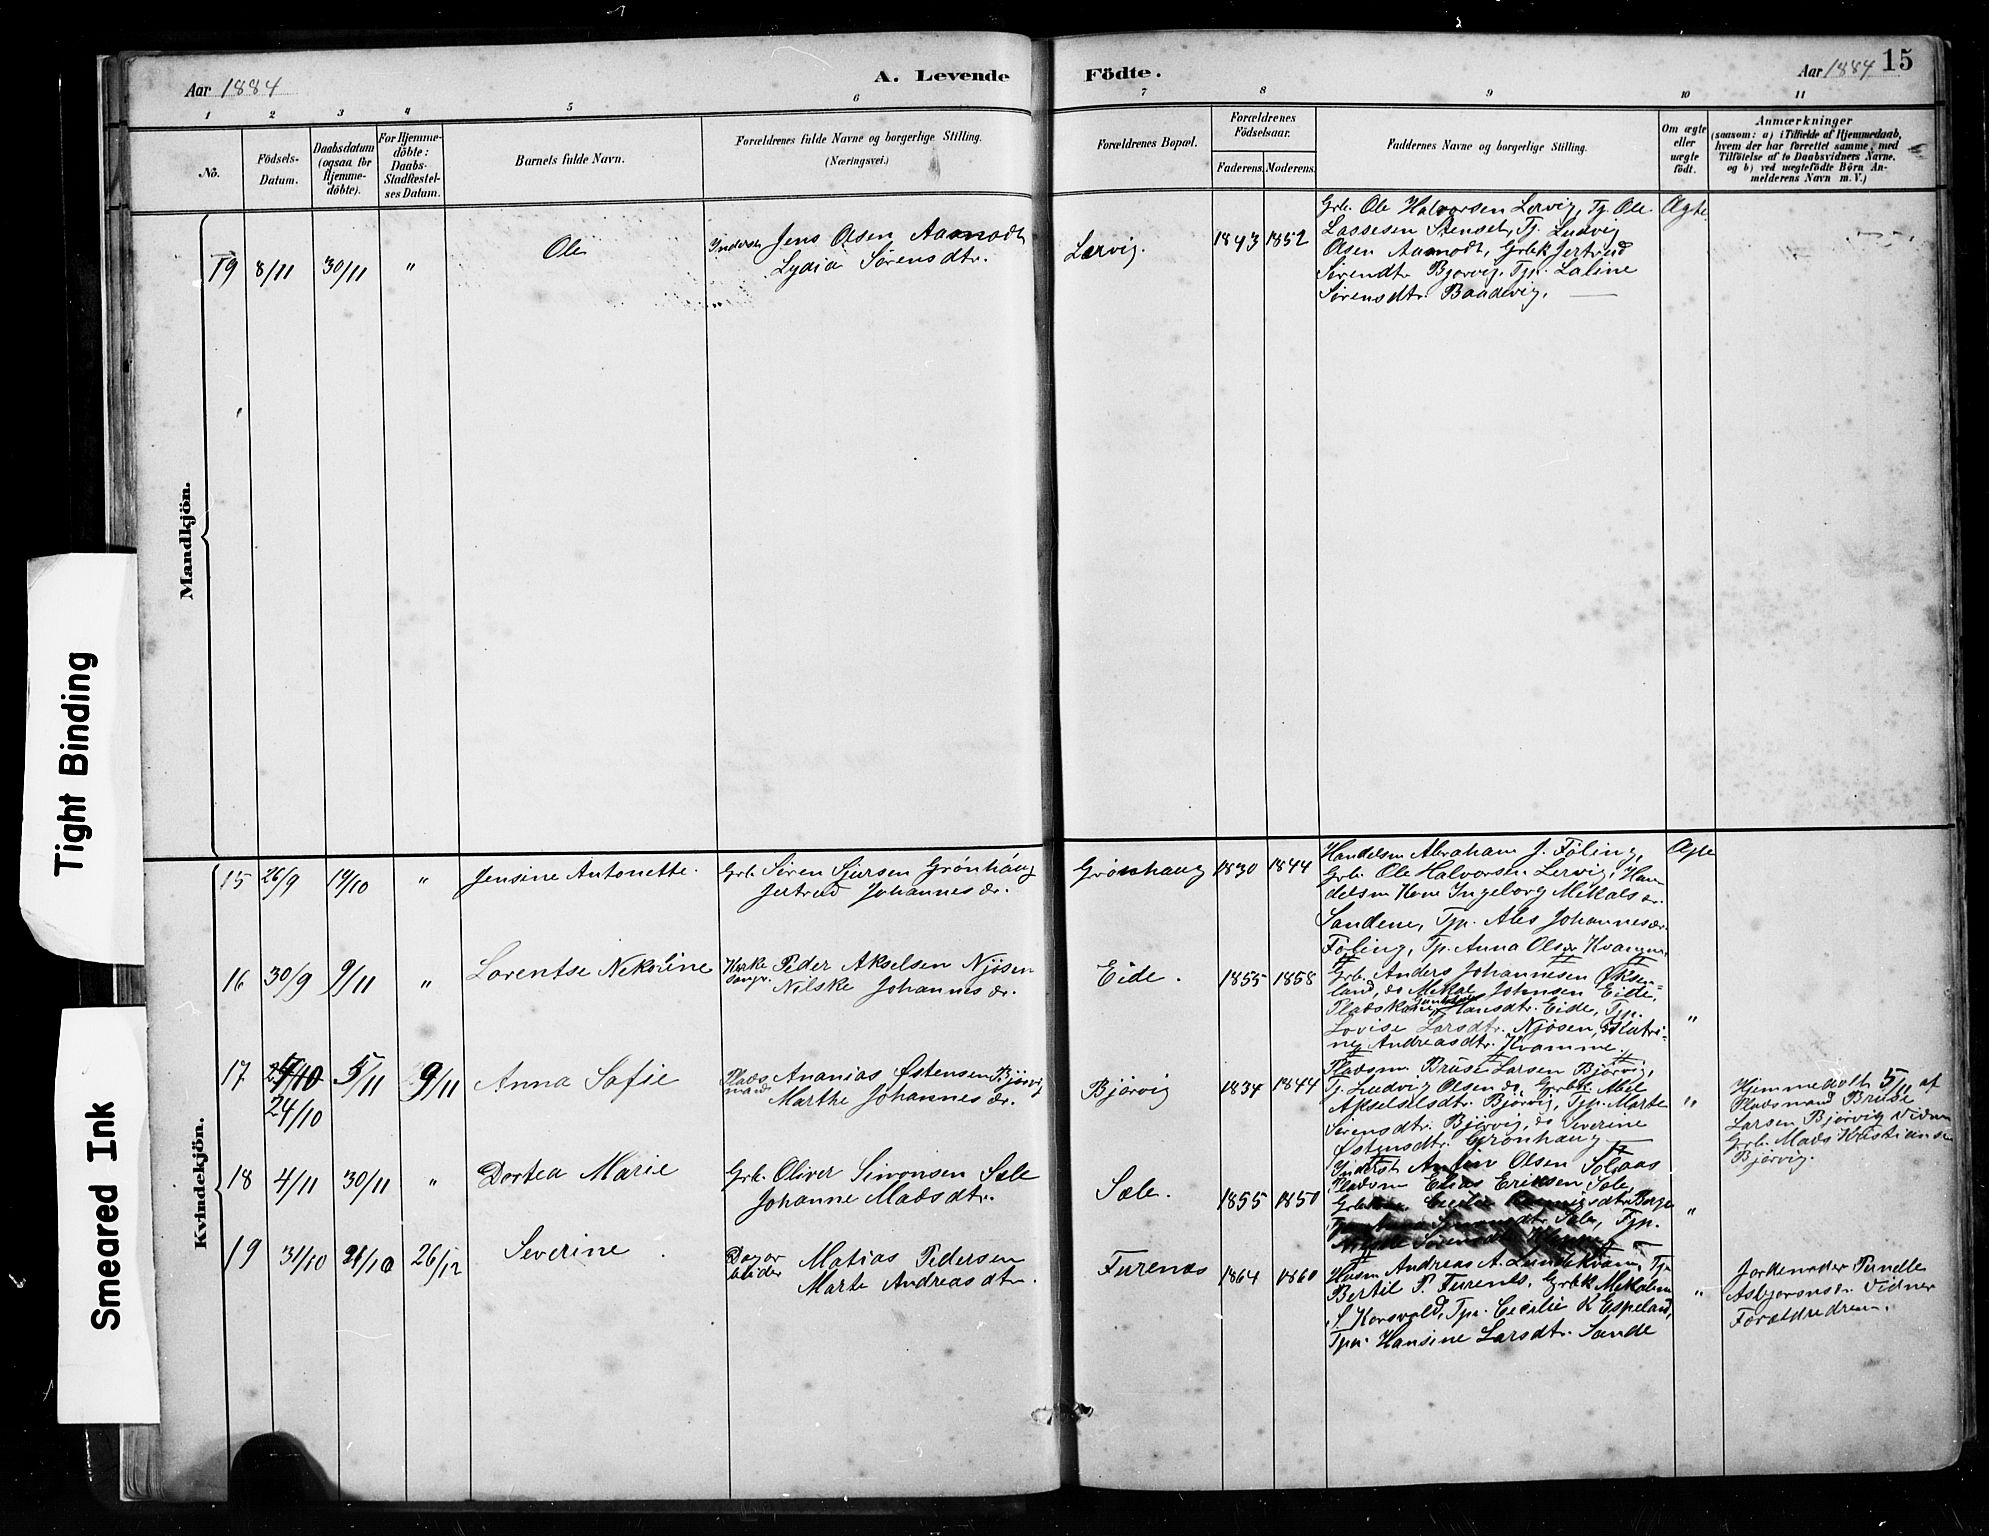 Aar 1884
A. Levende
Födte.
Aar 1884
15
1 2 3 4 5 6 7 8 9 10 11
No.
Födsels-
Datum.
Daabsdatum
(ogsaa for
Hjemme-
döbte).
For Hjemme-
döbte:
Daabs-
Stadfæstel-
ses Datum.
Barnets fulde Navn.
Forældrenes fulde Navne og borgerlige Stilling.
(Næringsvei.)
Forældrenes Bopæl.
Forældrenes
Födselsaar.
Faderens. Moderens.
Faddernes Navne og borgerlige Stilling.
Om ægte
eller
uægte
födt.
Anmærkninger
(saasom: a) i Tilfælde af Hjemmedaab,
hvem der har forrettet samme, med
Tilföielse af to Daabsvidners Navne,
og b) ved uægtefödte Börn An-
melderens Navn m. V.)
Mandkjön.
19 8/11 30/11 "
Ole
Inderst Jens Olsen Aamodt
Lydia Sørensdtr.
Lervig.
1843 1852
Grb. Ole Halvorsen Lervig, Tj. Ole
Lassesen Stenset, Tj. Ludvig
Olsen Aamodt, Grbk Jertrud
Sørendtr Bjørvig, Tjp. Laline
Sørensdtr. Baadevig.
Ægte
Kvindekjön.
15 26/9 19/10 "
Jensine Antonette.
Grb. Søren Sjursen Grønhaug
Jertrud Johannesdr.
Grønhaug
1830 1844
Handelsm Abraham J. Føling,
Grb. Ole Halvorsen Lervig, Han
delsm Kone Ingeborg Mikalsdr.
Sandene, Tjp. Ales Johannesdr.
Føling, Tp. Anna Olsdr Kvamm
Ægte
16 30/9 9/11 "
Lorentse Nekoline
Kirke
sanger. Peder Akselsen Njøsen
Nilske Johannesdr.
Eide.
1855 1858
Grb. Anders Johannesen Øksen-
land, do Mikal Johnsen Eide,
Pladskone Hansdtr. Eide, Tjp.
Lovise Larsdtr. Njøsen, Katri-
ne Andreasdtr. Kvamme.
"
17 24/10 5/11 9/11
24/10
Anna Sofie
Plads
mand Ananias Østensen Bjørvig
Marthe Johannesdr.
Bjørvig
1834 1844
Pladsm Bruse Larsen Bjørvig,
Tj. Ludvig Olsen do, Grbk. Abel
Akselsdtr. Bjørvig, Tjp. Marte
Sørensdtr. Bjørvig, do Severine
Østensdtr. Grønhaug
"
Hjemmedøbt 5/11 af
Pladsmand Bruse
Larsen Bjørvig Vidner
Grb. Mads Kristians
Bjørvig.
18 4/11 30/11 "
Dortea Marie
Grb. Oliver Simonsen Sæle
Johanne Madsdtr.
Sæle.
1855 1850
Inderst Olsen Solaas
Pladsm Elias Eriksen Sæle,
Sæle, Tjp.
"
19 31/10 31/10 26/12
Severine
Dagar
beider Matias Pedersen
Marte Andreasdtr.
Furenæs
1864 1860
Husm Andreas A. Lundekvam, Tj.
Bertil P. Furenes, Grbk Mekaline
S. Korsvold, Tpi. Cecilie K Espeland,
Tpi. Hansine Larsdtr. Sande
"
Jordemoder Pernelle
Asbjørnsdr. Vidner
Forældrene.
Tight Binding
Smeared Ink